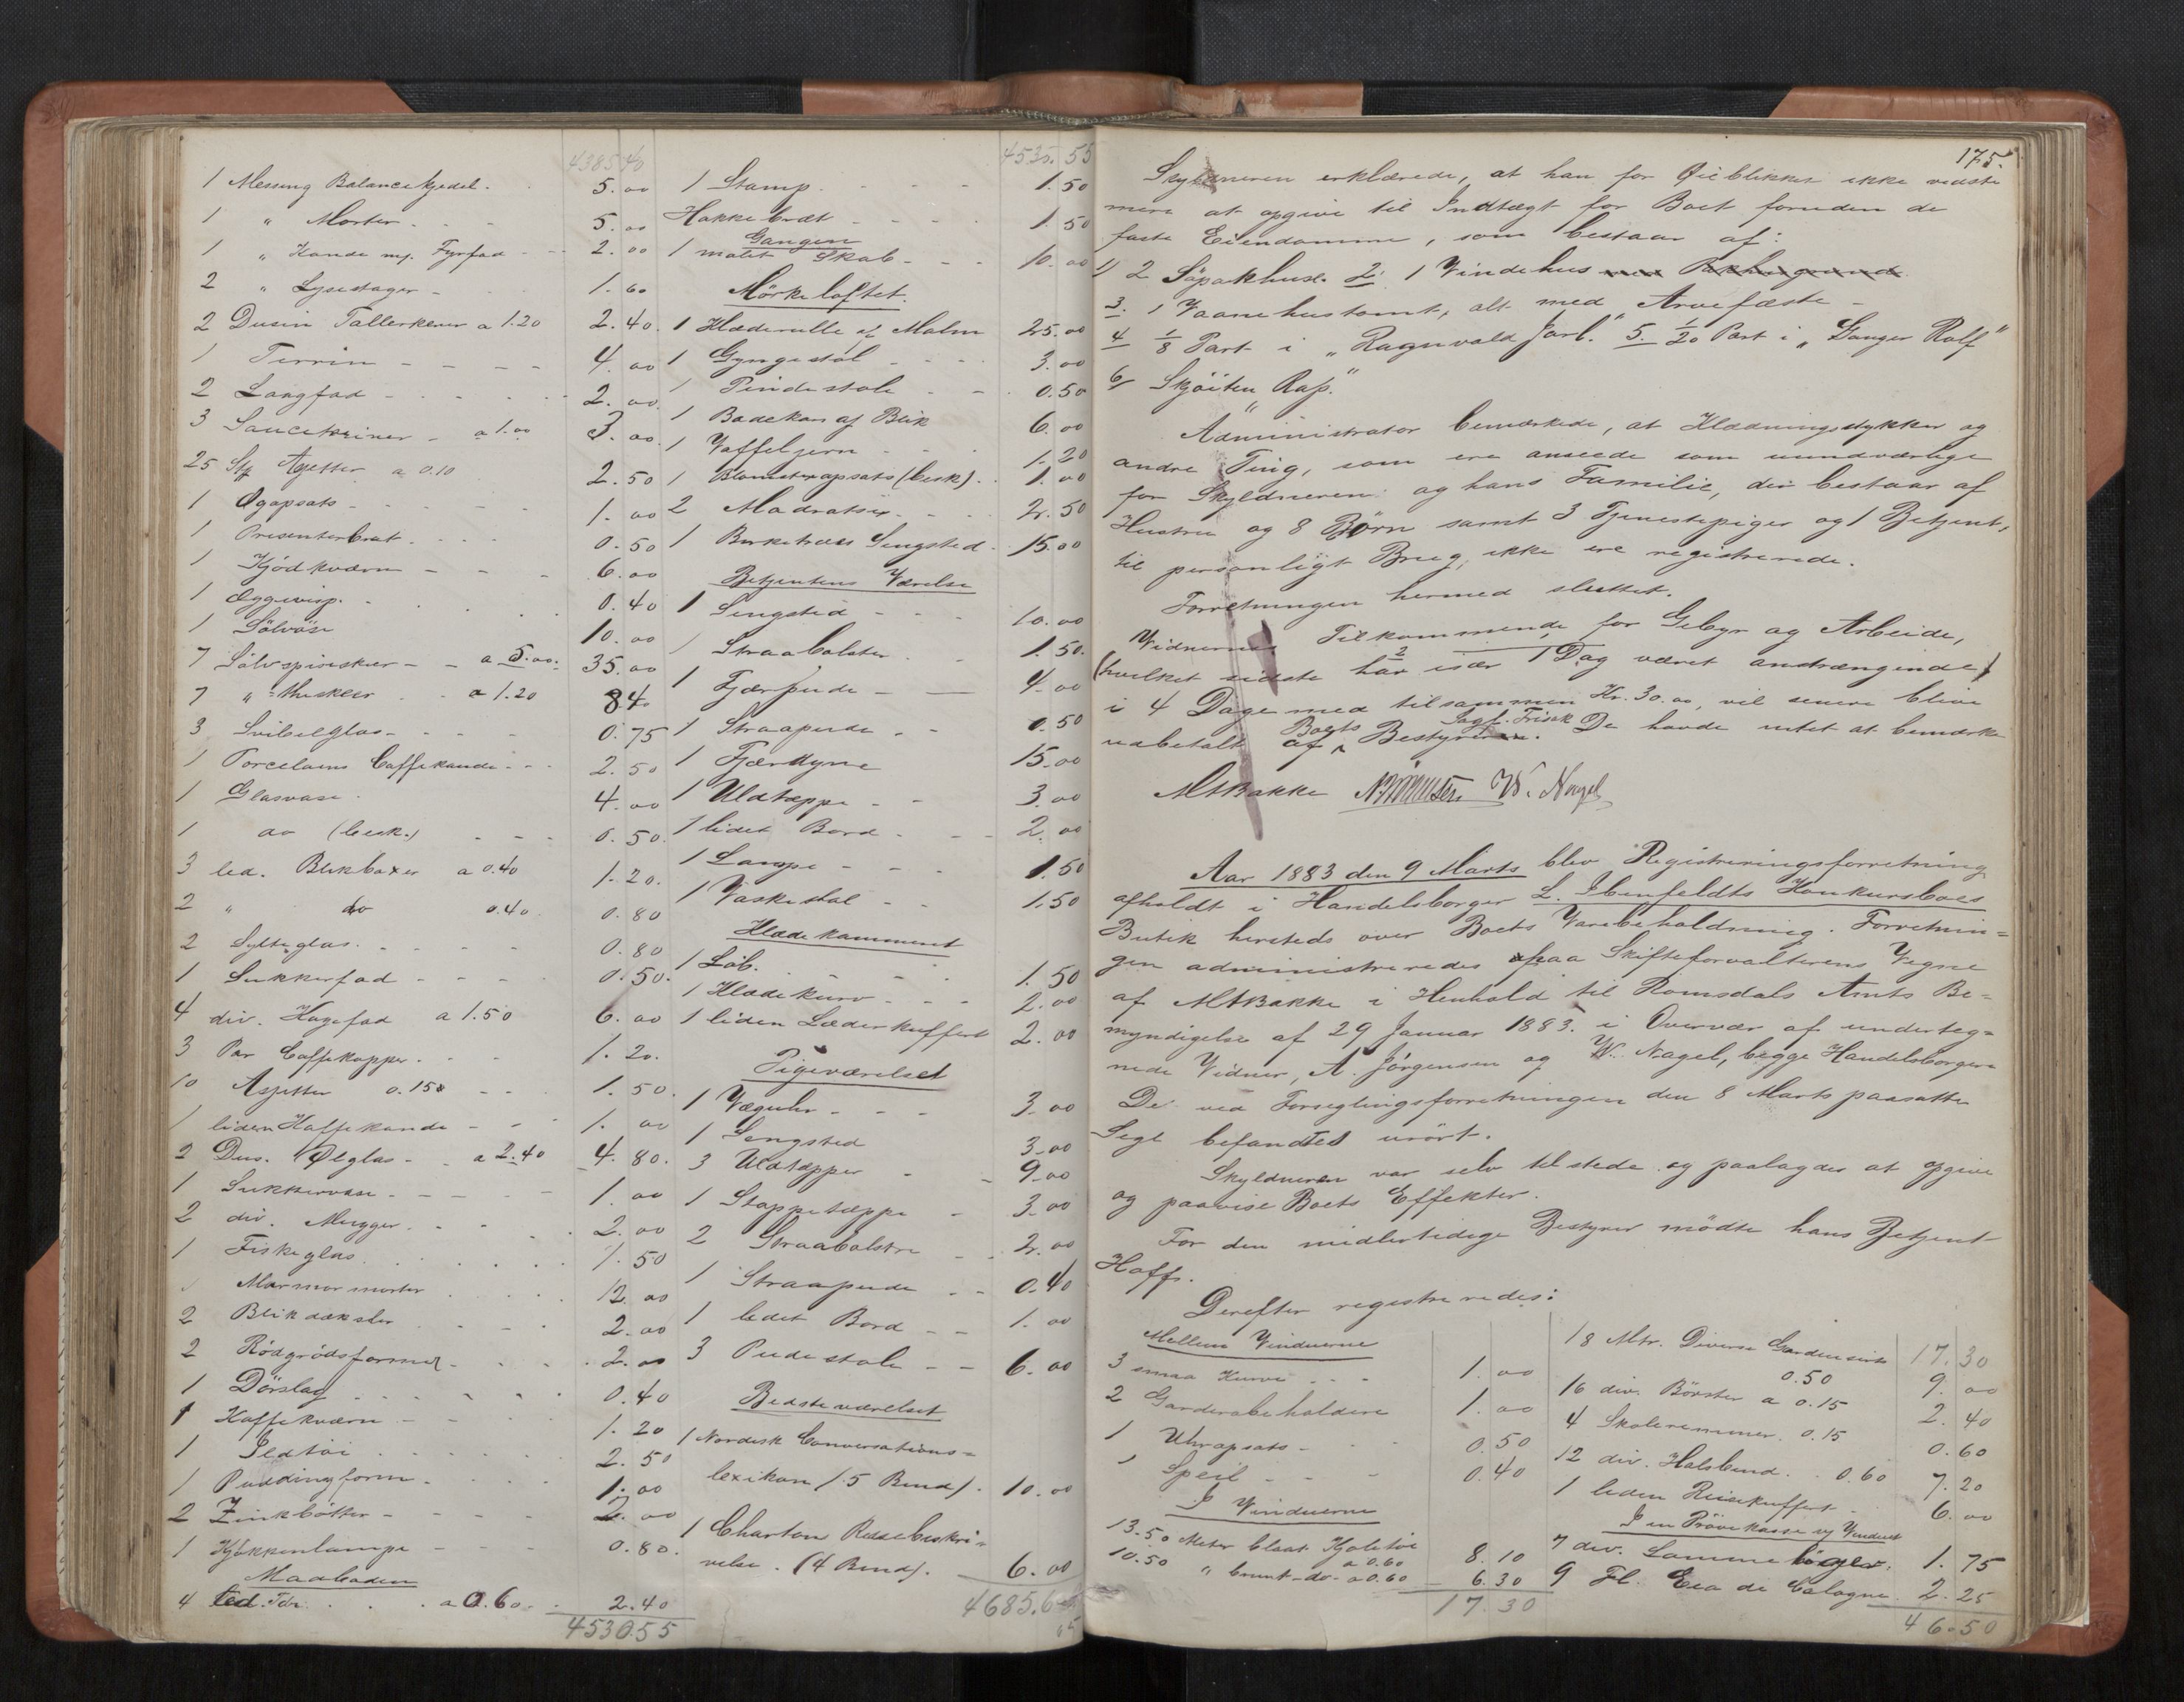 4385.40
1 Messing Balancekjedel. 5.00
1 " Morter. 5.00
1 " Kande m/. Fyrfad 2.00
2 " Lysestager 1.60
2 Dusin Tallerkener a 1.20 2.40
1 Terrin 4.00
2 Langfad 2.00
3 Sauceteriner a 1.00 3.00
25 Stk Asjetter a 0.10 2.50
1 Øgopsats 1.00
1 Presenterbræt 0.50
1 Kjödkværn 6.00
1 Æggevisp. 0.40
1 Sölvöse 10.00
7 Sölvspiseskeer a 5.00. 35.00
7 " theskeer a 1.20 8.40
3 Svibelglas 0.75
1 Porcelæns Caffekande 2.50
1 Glasvase 4.00
1 do (besk.) 0.50
3 led. Blikboxer a 0.40 1.20.
2 " do 0.40 0.80
2 Sylteglas 0.80
1 Sukkerfad 0.50.
4 div. Kagefad a 1.50 6.00
3 Par Caffekopper 1.20.
10 Asjetter 0.15 1.50.
1 liden Kaffekande 1.00
2 Dus. Ølglas a 2.40 4.80.
1 Sukkervase 1.00
2 div. Mugger. 2.00
1 Fiskeglas 1.50
1 Marmormorter 12.00
2 Blikdæksler 2.00
2 Rödgrödsformer 2.00
1 Dörslag 0.40
1 Kaffekværn 1.20
1 Ildtöi 2.50
1 Puddingform 1.00
2 Zinkbötter 2.00
1 Kjøkkenlampe 0.80.
Madboden
4 led. Tdr. a 0.60 2.40
4530.55
4530.55
1 Stamp 1.50
Hakkebræt 1.50
Gangen
1 malet Skab 10.00
Mörkeloftet.
1 Klæderulle af Malm 25.00
1 Gyngestol 3.00
1 Pindestole 0.50
1 Badekar af Blik 6.00
1 Vaffeljern 1.20
1 Blomsteropsats (besk). 1.00
2 Madratser 2.50
1 Birketræs Sengsted 15.00
Betjentens Værelse
1 Sengsted 10.00
1 Straabolster 1.50.
1 Fjærpude 4.00
1 Straapude 0.50
1 Fjærdyne 15.00
1 Uldtæppe 3.00
1 lidet Bord 2.00
1 Lampe 1.50
1 Vaskestol 1.50
Klædekammeret
1 Löb. 1.50
1 Klædekurv 2.00
1 liden Læderkuffert 2.00
Pigeværelset
1 Væguhr 3.00
1 Sengsted 3.00
3 Uldtæpper 9.00
1 Stoppetæppe 3.00
2 Straabolstre 2.00
1 Straapude 0.40
1 lidet Bord 1.00
3 Pindestole 6.00
Bedsteværelset
1 Nordisk Conversations=
lexikon (5 Bind). 10.00
1 Charton Reisebeskri=
velse. (4 Bind). 6.00
4685.65
175.
Skyldneren erklærede, at han for Øieblikket ikke vidste
mere at opgive til Indtægt for Boet foruden de
faste Eiendomme, som bestaar af:
1) 2 Söpakhuse. 2. 1 Vindehus med Pakhusgrund
3. 1 Vaanehustomt, alt med Arvefæste -
4 1/8 Part i "Ragnvald Jarl." 5. 1/20 Part i "Ganger Rolf"
6/ Skjöiten "Rap."
Administrator bemærkede, at Klædningsstykker og
andre Ting, som ere anseede som uundværlige
for Skyldneren og hans Familie, der bestaar af
Hustru og 8 Börn samt 3 Tjenestepiger og 1 Betjent,
til personligt Brug, ikke ere registrerede.
Forretningen hermed sluttet.
Vidnernes Tilkommende for Gebyr og Arbeide,
(hvilket sidste har især 1 Dag været anstrængende)
2
i 4 Dage med tilsammen Kr. 30.00, vil senere blive
udbetalt af Boets Bestyrer Sagf. Frisak De havde intet at bemærke
MABakke W. Nagel
Aar 1883 den 9 Marts blev Registreringsforretning
afholdt i Handelsborger L. Ibenfeldts Konkursboes
Butik hersteds over Boets Varebeholdning. Forretnin=
gen administreredes paa Skifteforvalterens Vegne
af MABakke i Henhold til Romsdals Amts Be=
myndigelse af 29 Januar 1883. i Overvær af underteg=
nede Vidner, A. Jörgensen og W. Nagel, begge Handelsborgere
De ved Forseglingsforretningen den 8 Marts paasatte
Segl befandtes urört.
Skyldneren var selv tilstede og paalagdes at opgive
og paavise Boets Effekter.
For den midlertidige Bestyrer mödte hans Betjent
Hoff.
Derefter registreredes:
Mellem Vinduerne
3 smaa Kurve 1.00
2 Garderobeholdere 1.00
1 Uhropsats 0.50
1 Speil 0.40
I Vinduerne
13.50 Meter blaat Kjoletöi a 0.60 8.10
10.50 " brunt do. a 0.60 6.30
17.30
17.30
18 Mtr. Diverse Gardinsirts 0.50 9.00
16 div. Börster a 0.15 2.40
4 Skoleremmer. 0.15 0.60
12 div. Halsbind. 0.60 7.20
1 liden Reisekuffert 6.00
I en Prövekasse og Vinduet
7 div. Lommebøger. 1.75
9 Fl. Eau de Cologne 2.25
46.50